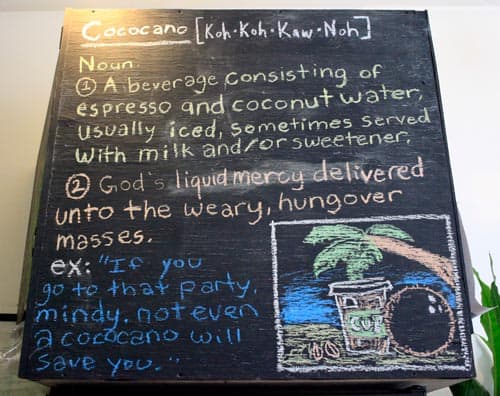 Cococano [Koh·Koh·Kaw·Noh]
Noun
① A beverage consisting of
espresso and coconut water,
usually iced, sometimes served
with milk and/or sweetener.
② God's liquid mercy delivered
unto the weary, hungover
masses.
ex: "If you
go to that party,
mindy, not even
a cococano will
save you."
CUP